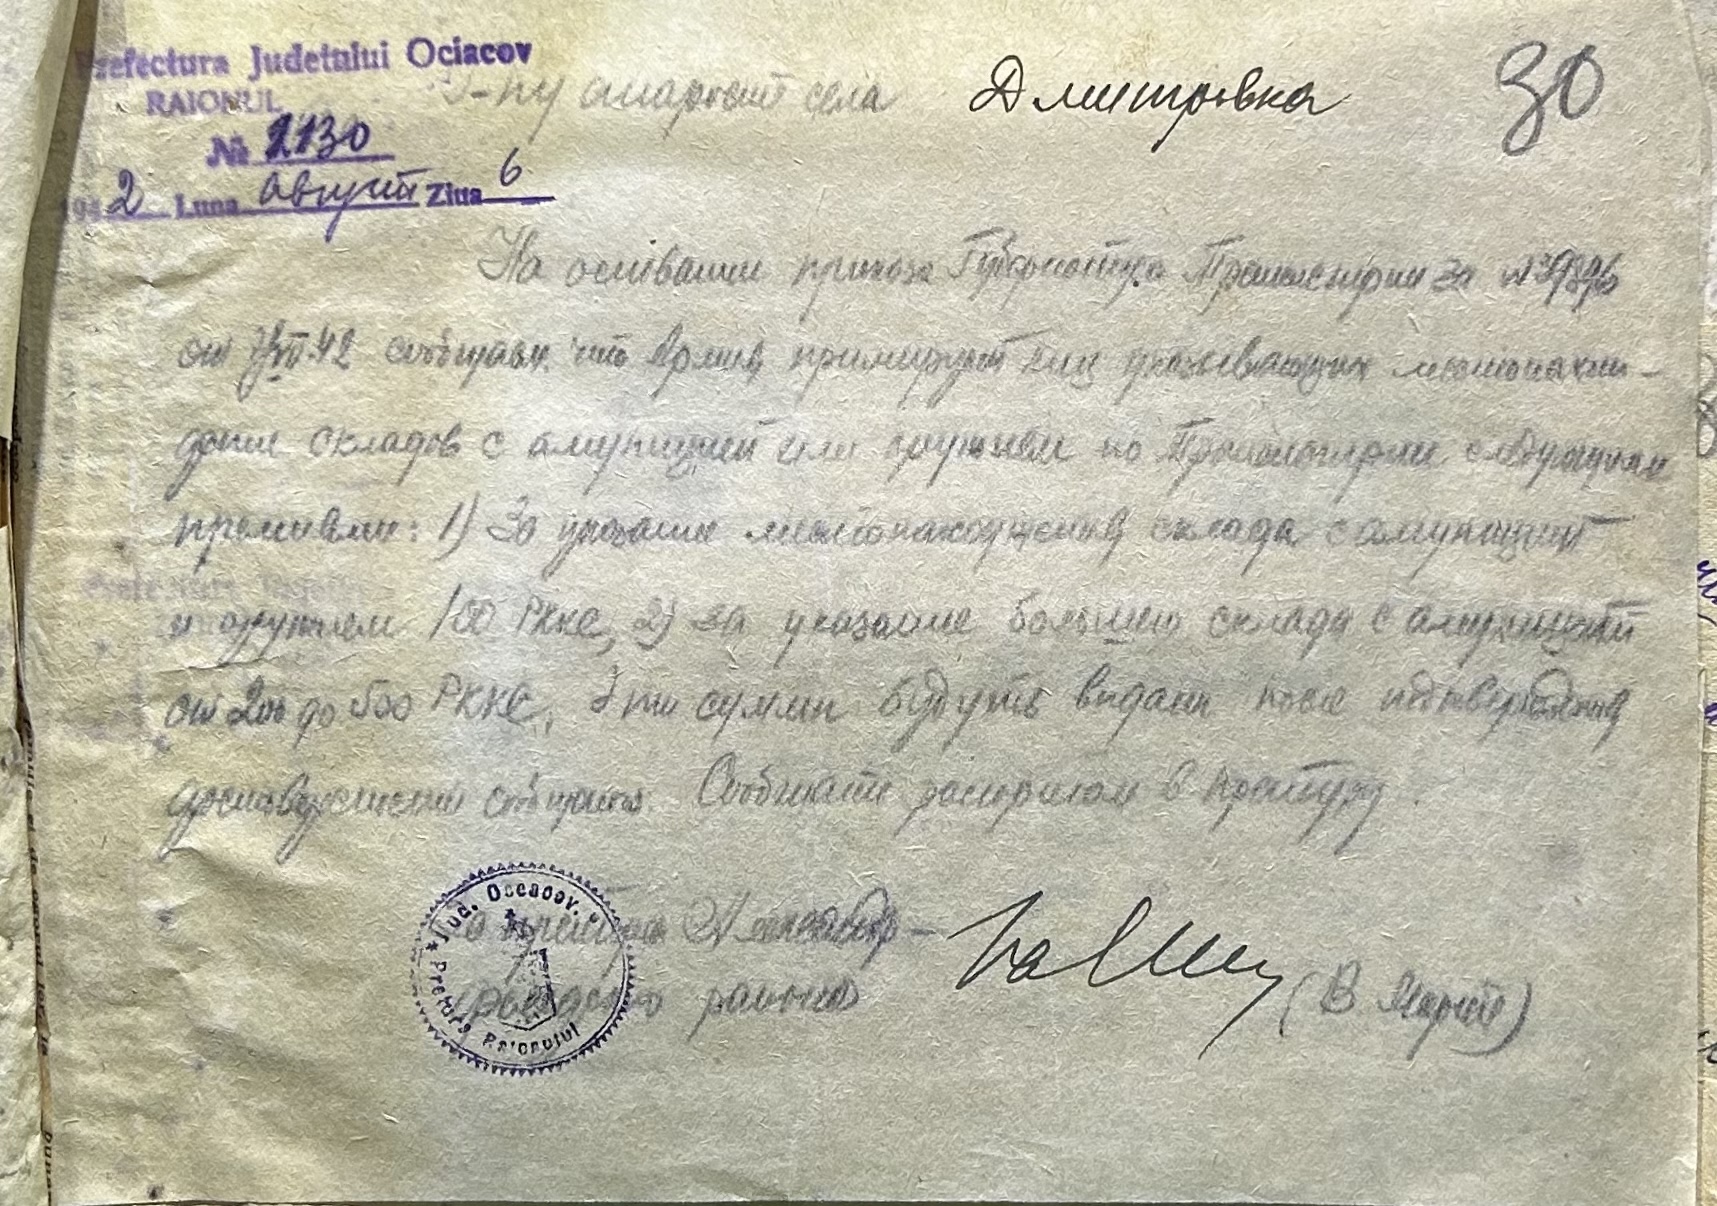 Prefectura Județului Ociacov
RAIONUL
№ 2130
1942 Luna август Ziua 6
Г-ну старосте села Дмитровка
30
На основании приказа Губернатора Транснистрии за №
от 42 сообщаем что Армия премирует лиц указывающих местонахож-
дение складов с амуницией или оружием по Транснистрии следующими
премиями: 1) За указание местонахождения склада с амуницией
и оружием 100 РККС, 2) за указание большого склада с амуницией
от 200 до 500 РККС. Эти суммы будут выданы после подтверждения
достоверности Сообщать в претуру.
претора
района
Jud. Oceacov. Pretura Raionului